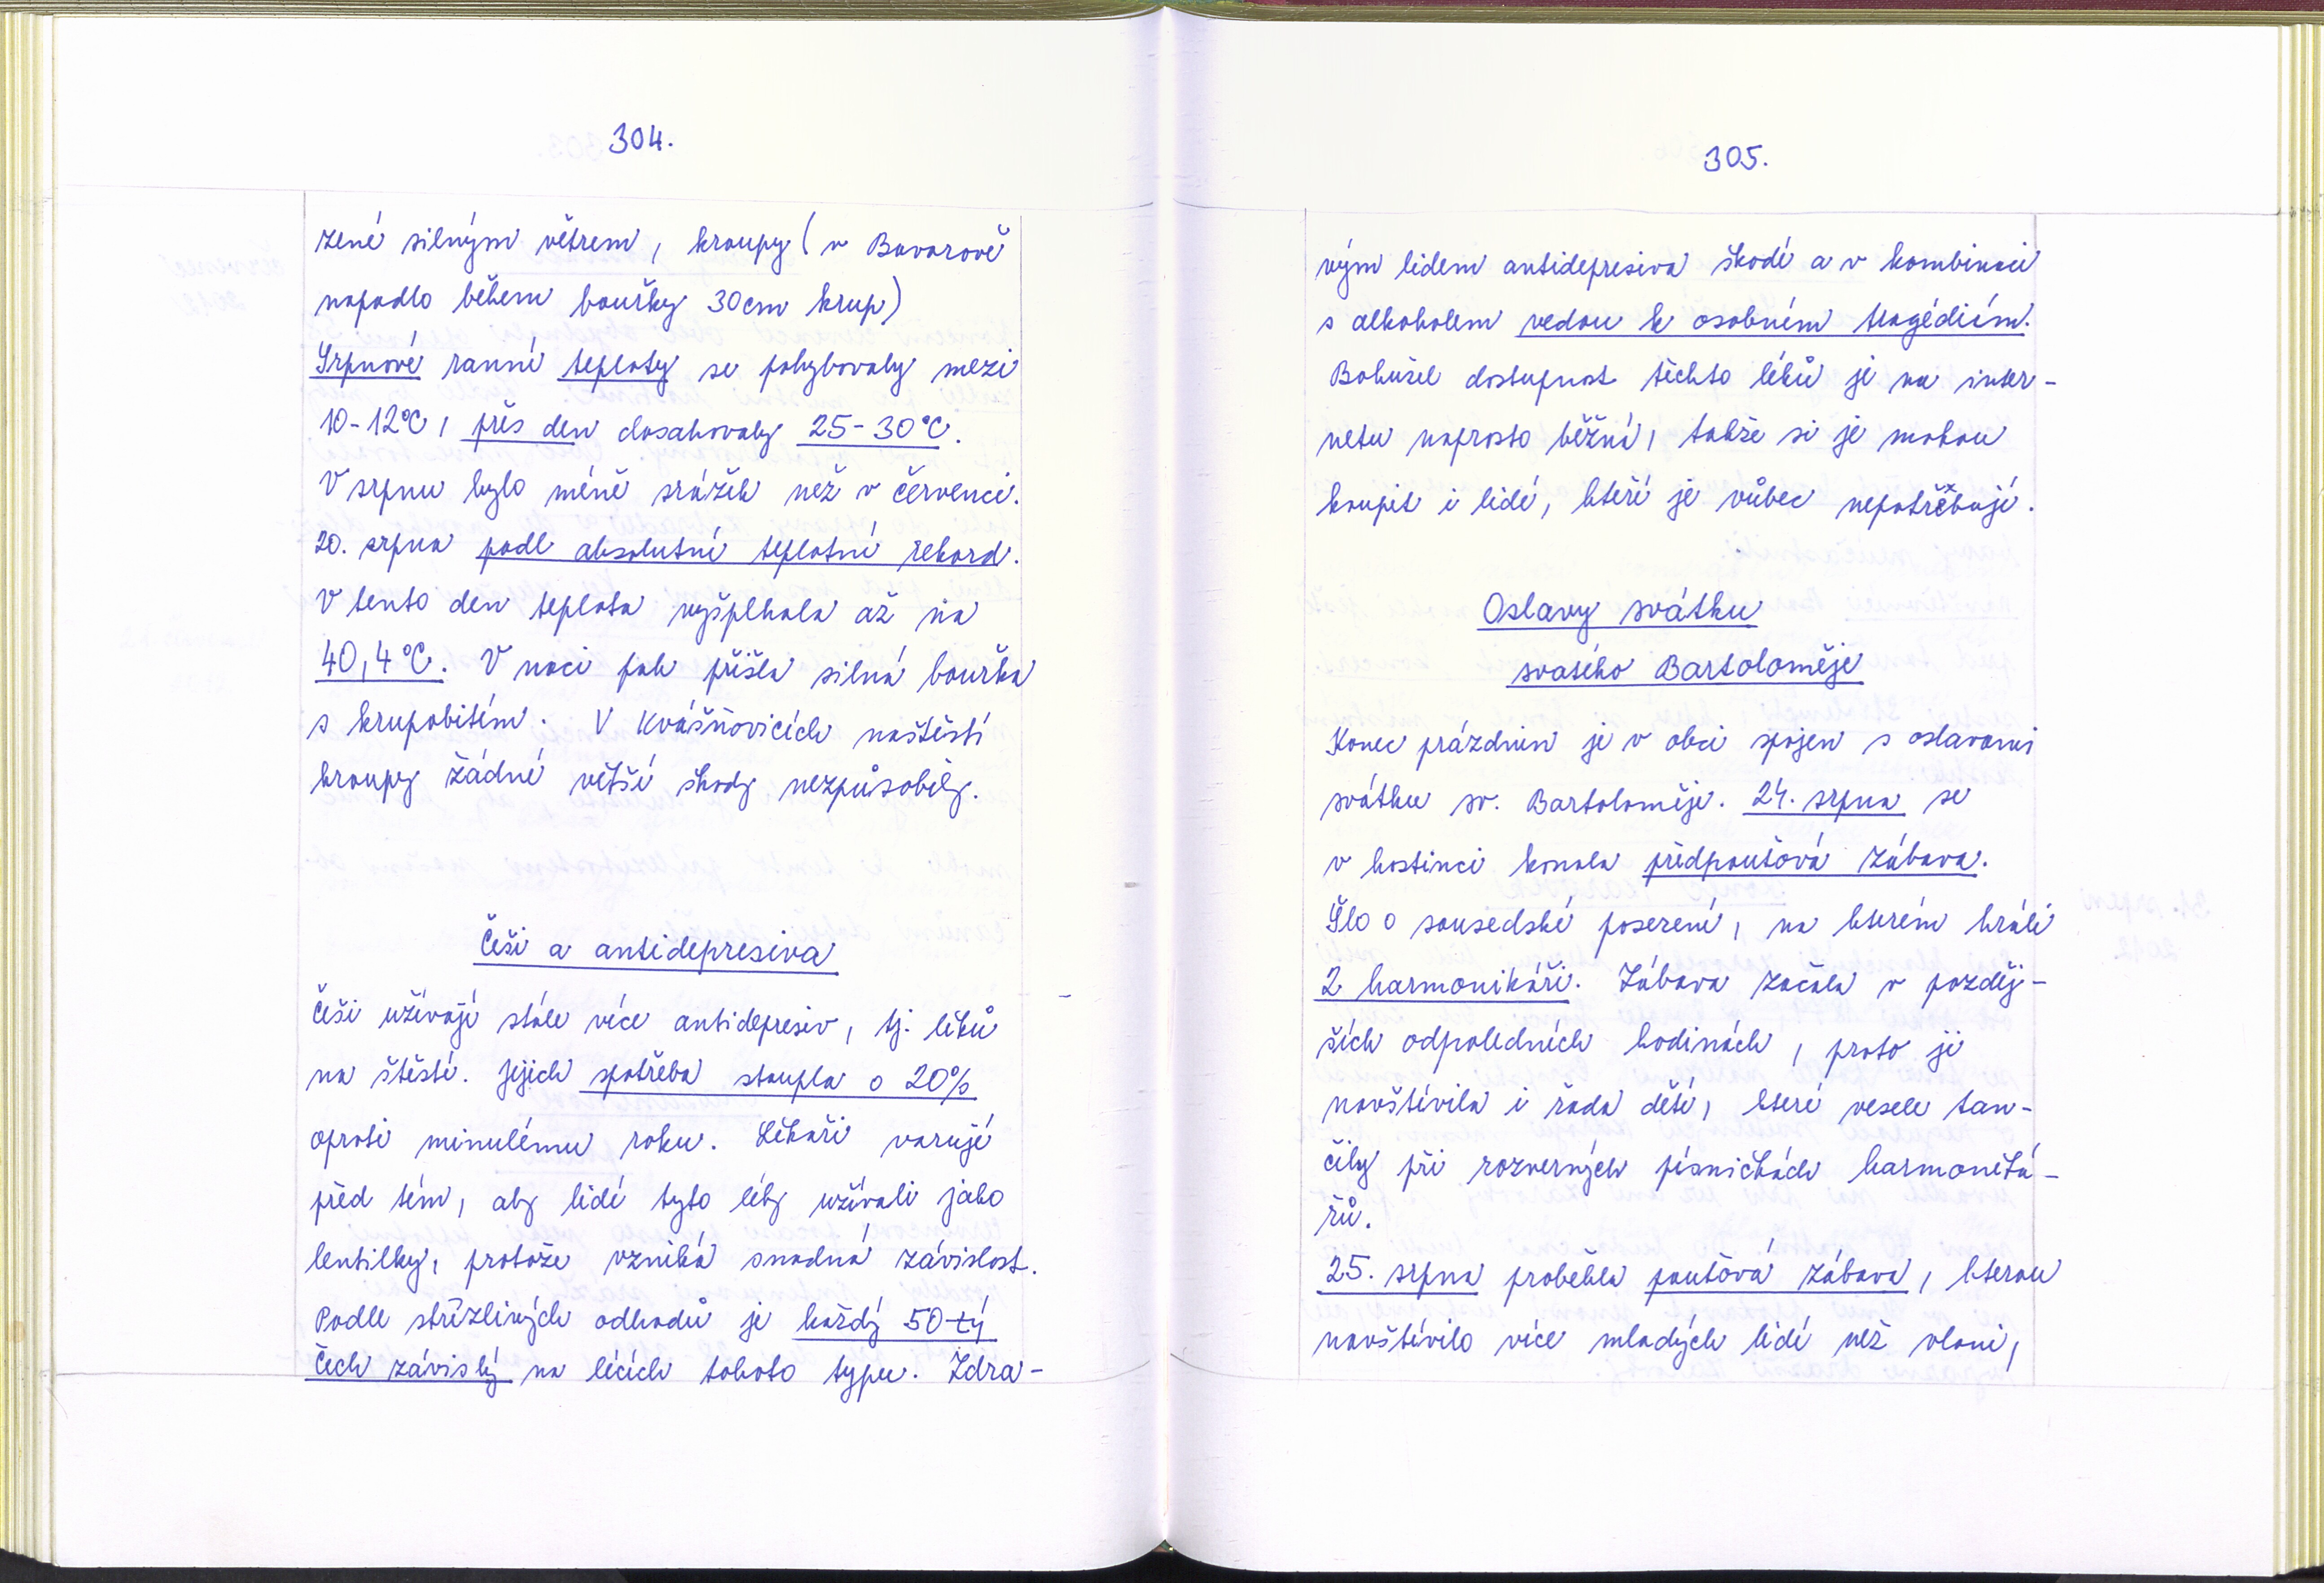 304.
zené silným větrem, kroupy (v Bavorově
napadlo během bouřky 30cm krup)
Srpnové ranní teploty se pohybovaly mezi
10-12°C, přes den dosahovaly 25-30°C.
V srpnu bylo méně srážek než v červenci.
20. srpna padl absolutní teplotní rekord.
V tento den teplota vyšplhala až na
40,4°C. V noci pak přišla silná bouřka
s krupobitím. V Kvášňovicích naštěstí
kroupy žádné větší škody nezpůsobily.
Češi a antidepresiva
Češi užívají stále více antidepresiv, tj. léků
na štěstí. Jejich spotřeba stoupla o 20%
oproti minulému roku. Lékaři varují
před tím, aby lidé tyto léky užívali jako
lentilky, protože vzniká snadná závislost.
Podle střízlivých odhadů je každý 50-tý
Čech závislý na lécích tohoto typu. Zdra-
305.
vým lidem antidepresiva škodí a v kombinaci
s alkoholem vedou k osobním tragédiím.
Bohužel dostupnost těchto léků je na inter-
netu naprosto běžná, takže si je mohou
koupit i lidé, kteří je vůbec nepotřebují.
Oslavy svátku
svatého Bartoloměje
Konec prázdnin je v obci spojen s oslavami
svátku sv. Bartoloměje. 24. srpna se
v hostinci konala předpouťová zábava.
Šlo o sousedské posezení, na kterém hráli
2 harmonikáři. Zábava začala v pozděj-
ších odpoledních hodinách, proto ji
navštívila i řada dětí, které vesele tan-
čily při rozverných písničkách harmoniká-
řů.
25. srpna proběhla pouťová zábava, kterou
navštívilo více mladých lidí než vloni,